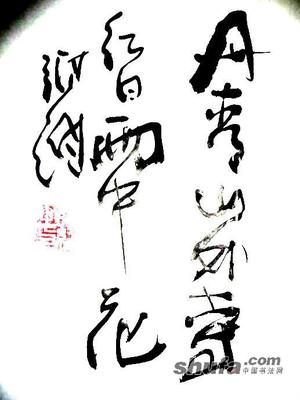 丹青山外
红日雨中花
shufa.com
中国书法网